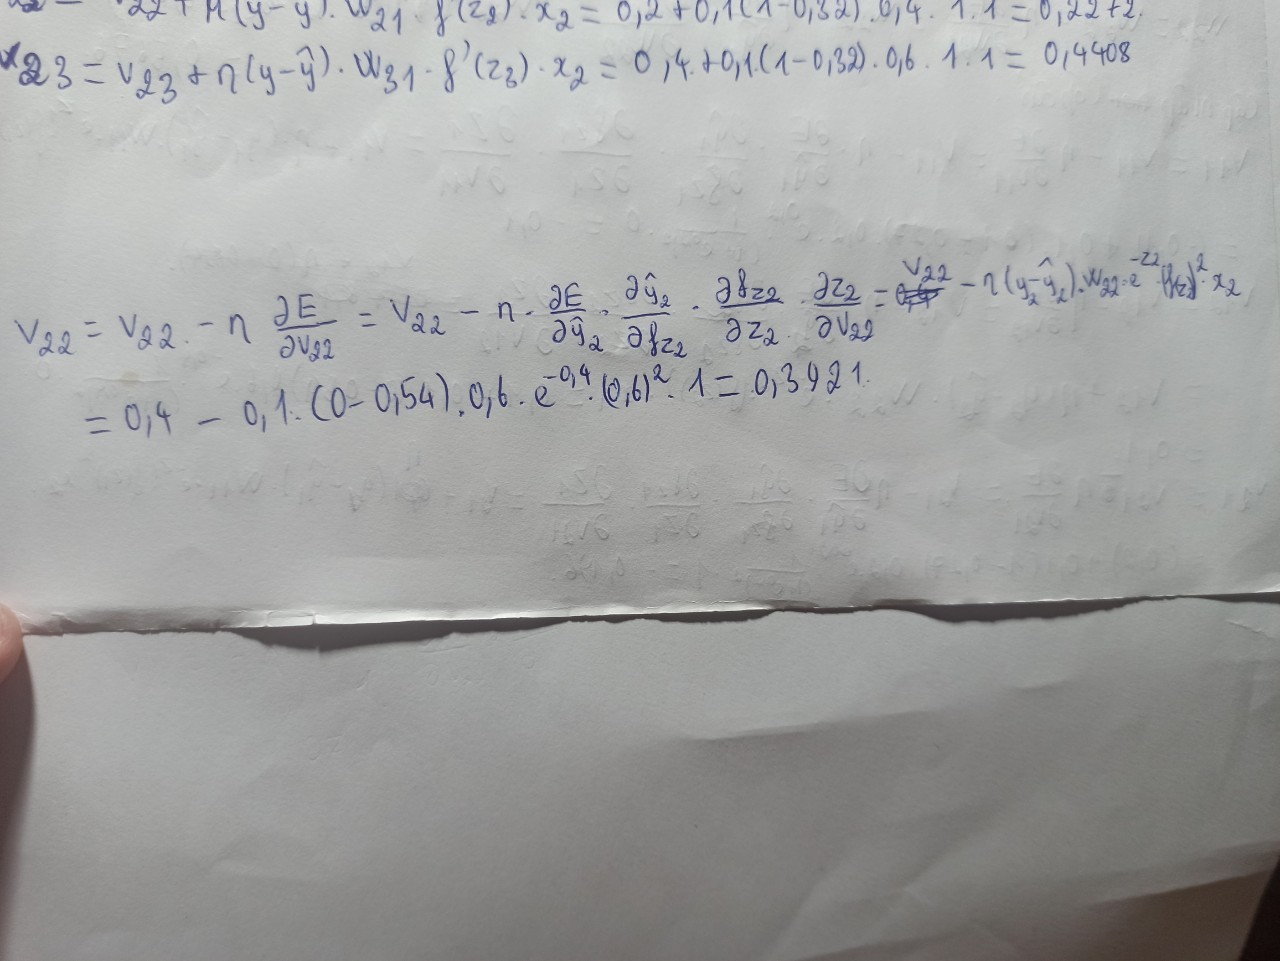 v22 + η(y-ŷ) · W21 · f'(z2) · x2 = 0,2 + 0,1(1-0,32) · 0,4 · 1 · 1 = 0,22+2
v23 = v23 + η(y-ŷ) · W31 · f'(z3) · x2 = 0,4 + 0,1 · (1-0,32) · 0,6 · 1 · 1 = 0,4408
v22 = v22 - η ∂E/∂v22 = v22 - η · ∂E/∂ŷ2 · ∂ŷ2/∂fz2 · ∂fz2/∂z2 · ∂z2/∂v22 = v22 - η(y2-ŷ2) · W22 · e^-z2 · (f(z))^2 · x2
= 0,4 - 0,1 · (0-0,54) · 0,6 · e^-0,4 · (0,6)^2 · 1 = 0,3921